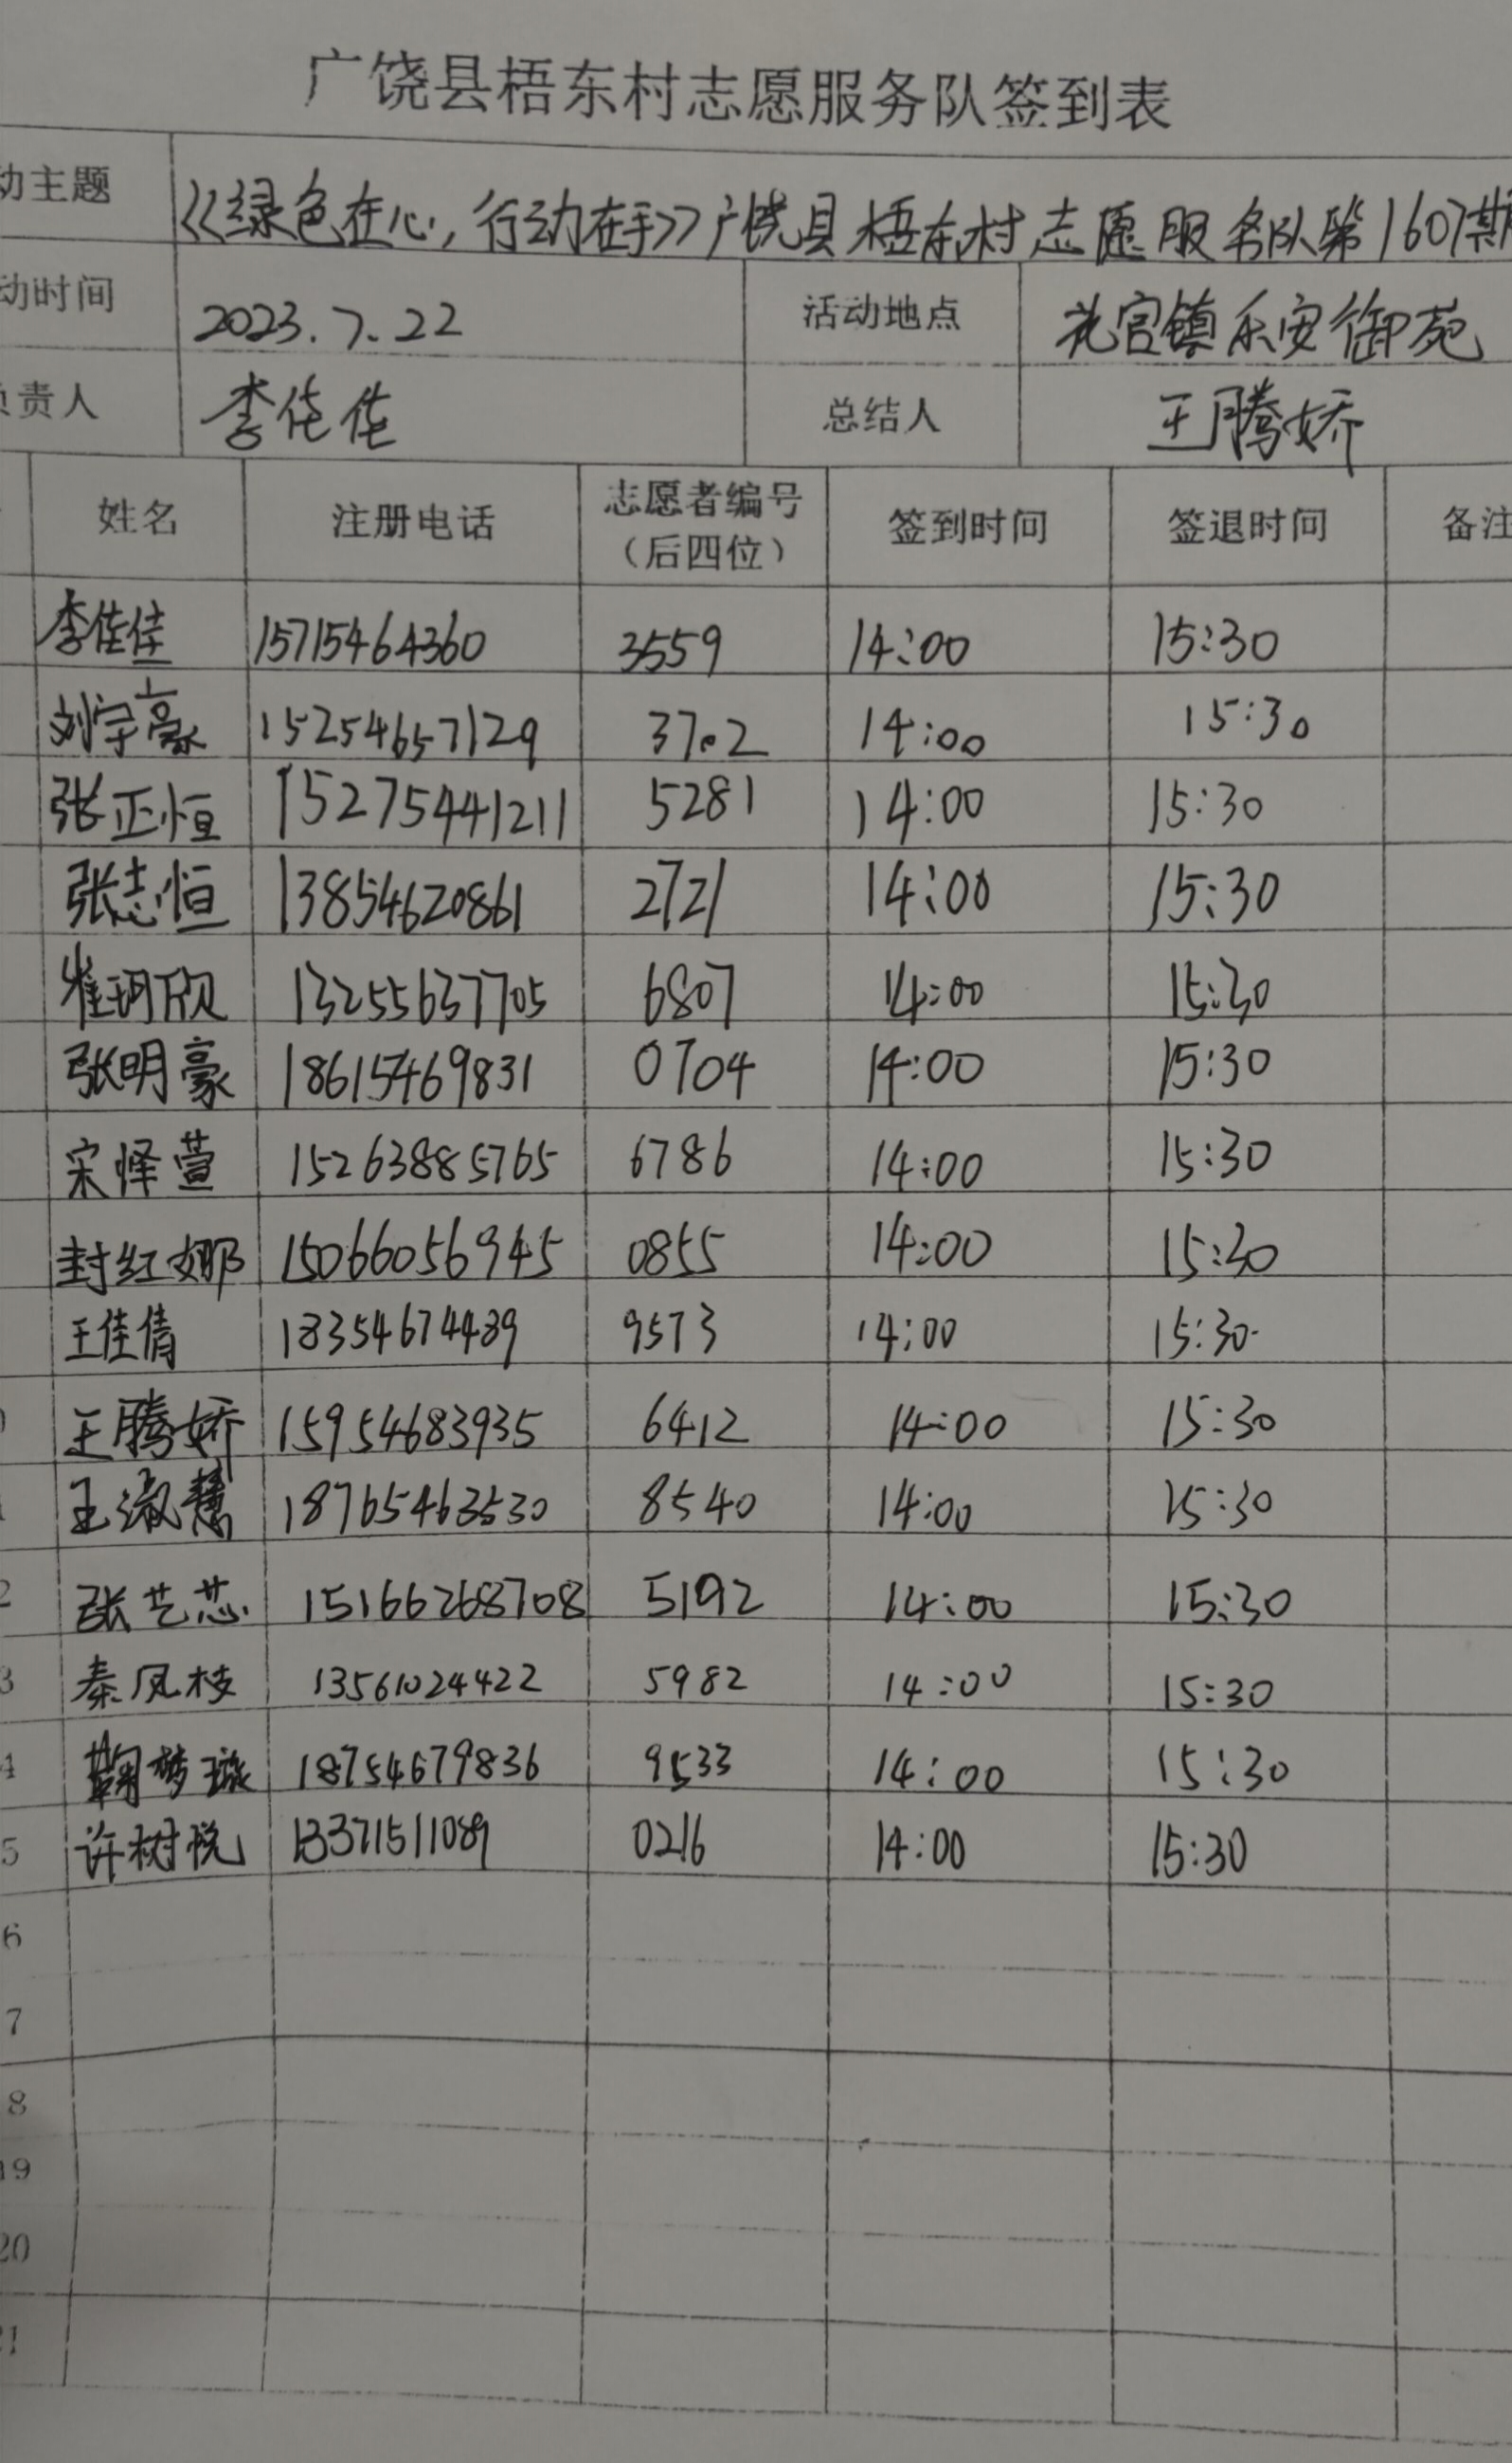 广饶县梧东村志愿服务队签到表
动主题 《绿色在心,行动在手》广饶县梧东村志愿服务队第1607期
动时间 2023.7.22 活动地点 花官镇乐安御苑
负责人 李佳佳 总结人 王腾娇
姓名 注册电话 志愿者编号 签到时间 签退时间 备注
(后四位)
李佳佳 15715464360 3559 14:00 15:30
刘宇豪 15254657129 3702 14:00 15:30
张正恒 15275441211 5281 14:00 15:30
张志恒 13854620861 2721 14:00 15:30
崔玥欣 13255637705 6807 14:00 15:30
张明豪 18615469831 0704 14:00 15:30
宋怿萱 15263885765 6786 14:00 15:30
封红娜 15066056945 0855 14:00 15:30
王佳倩 18354674489 9573 14:00 15:30
王腾娇 15954683935 6412 14:00 15:30
王淑慧 18765463530 8540 14:00 15:30
2 张艺芯 15166268708 5192 14:00 15:30
3 秦凤枝 13561024422 5982 14:00 15:30
4 鞠梦璇 18754679836 9533 14:00 15:30
5 许树悦 13371511089 0216 14:00 15:30
6
7
8
19
20
21